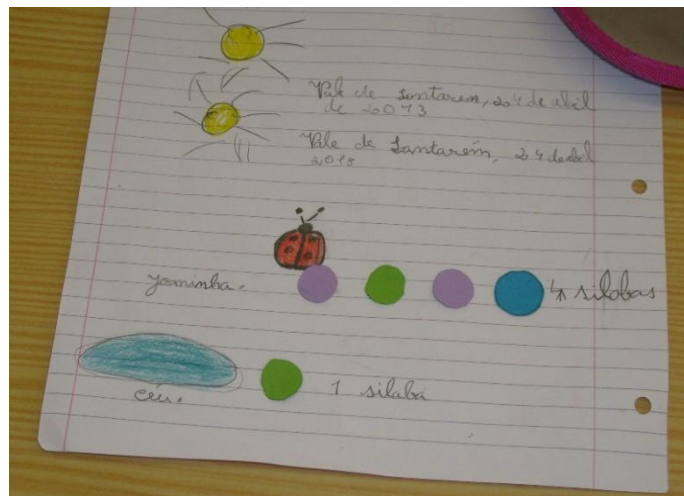 Vale de Santarém, 24 de abril
de 2013
Vale de Santarém, 24 de abril
2013
joaninha.
4 silabas
céu.
1 silaba